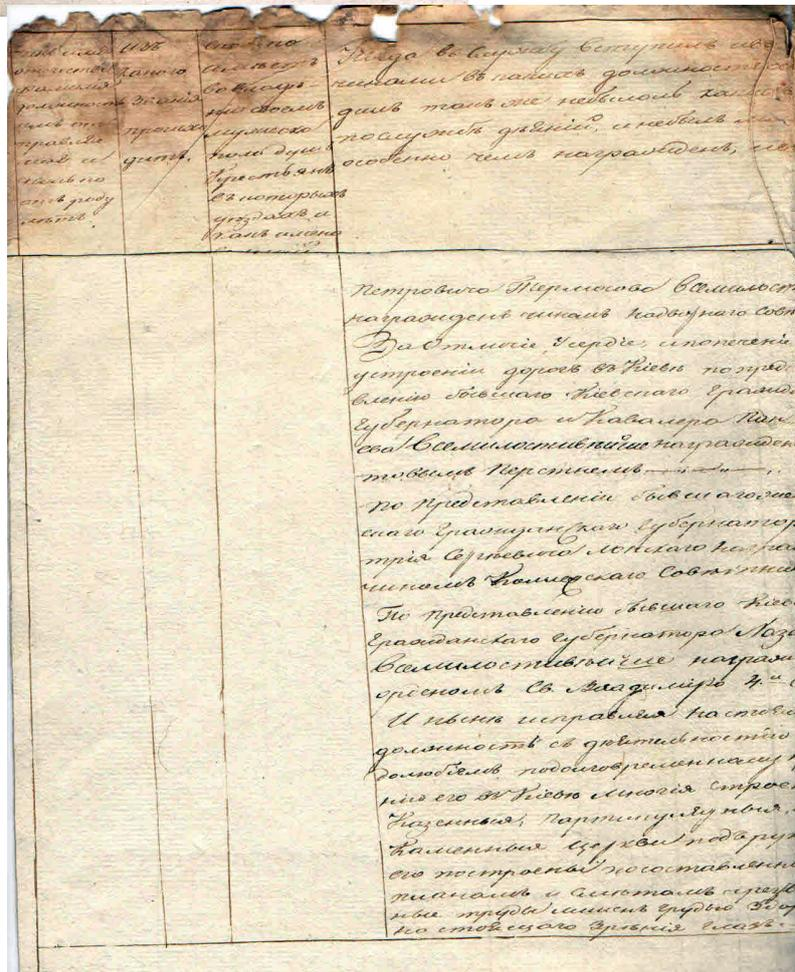 изъ
какого
званія
происхо
дитъ.
во владѣ
ніи своемъ
мужеска
полу душъ
Крестьянъ
въ которыхъ
уѣздахъ и
какъ имено
Когда въ службу вступилъ
чинами въ какихъ должностяхъ
дилъ такъ же небылоль какихъ
по службѣ дѣяній, и небылъ ли
особенно чемъ награжденъ,
Петровича Тормосова Всемилост
награжденъ чиномъ Надворнаго Совѣ
За Отличіе, Усердіе, и попеченіе
устроеніи дорогъ въ Кіевѣ по пред
влѣнію бывшаго Кіевскаго Гражд
Губернатора и Кавалера Пан
ева Всемилостивѣйше награжден
товымъ Перстнемъ
по представленіи бывшаго
скаго Гражданскаго Губернатор
трія Сергѣевича Ланскаго Награ
чиномъ Коллежскаго Совѣтни
По представленію бывшаго Кіев
Гражданскаго Губернатора Наза
Всемилостивѣйше награжд
орденомъ Св. Владиміра 4й
И нынѣ исправляя настоящ
должность съ дѣятельностію
долюбіемъ подолговременному
нію его въ Кіевѣ многія строен
Казенныя, партикулярныя,
Каменныя Церкви подъ рук
его построены по составленн
планамъ и смѣтамъ чрезъ
ные труды
на стоящаго Зрѣнія глазъ.